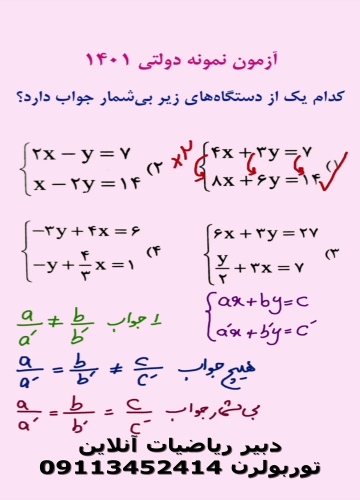 آزمون نمونه دولتی ۱۴۰۱
کدام یک از دستگاه‌های زیر بی‌شمار جواب دارد؟
۱) ۴x + ۳y = ۷
۸x + ۶y = ۱۴
×۲
۲) ۲x − y = ۷
x − ۲y = ۱۴
۳) ۶x + ۳y = ۲۷
y/۲ + ۳x = ۷
۴) −۳y + ۴x = ۶
−y + ۴/۳ x = ۱
ax + by = c
a′x + b′y = c′
a/a′ ≠ b/b′ ۱ جواب
a/a′ = b/b′ ≠ c/c′ هیچ جواب
a/a′ = b/b′ = c/c′ بی‌شمار جواب
دبیر ریاضیات آنلاین
توربولرن 09113452414